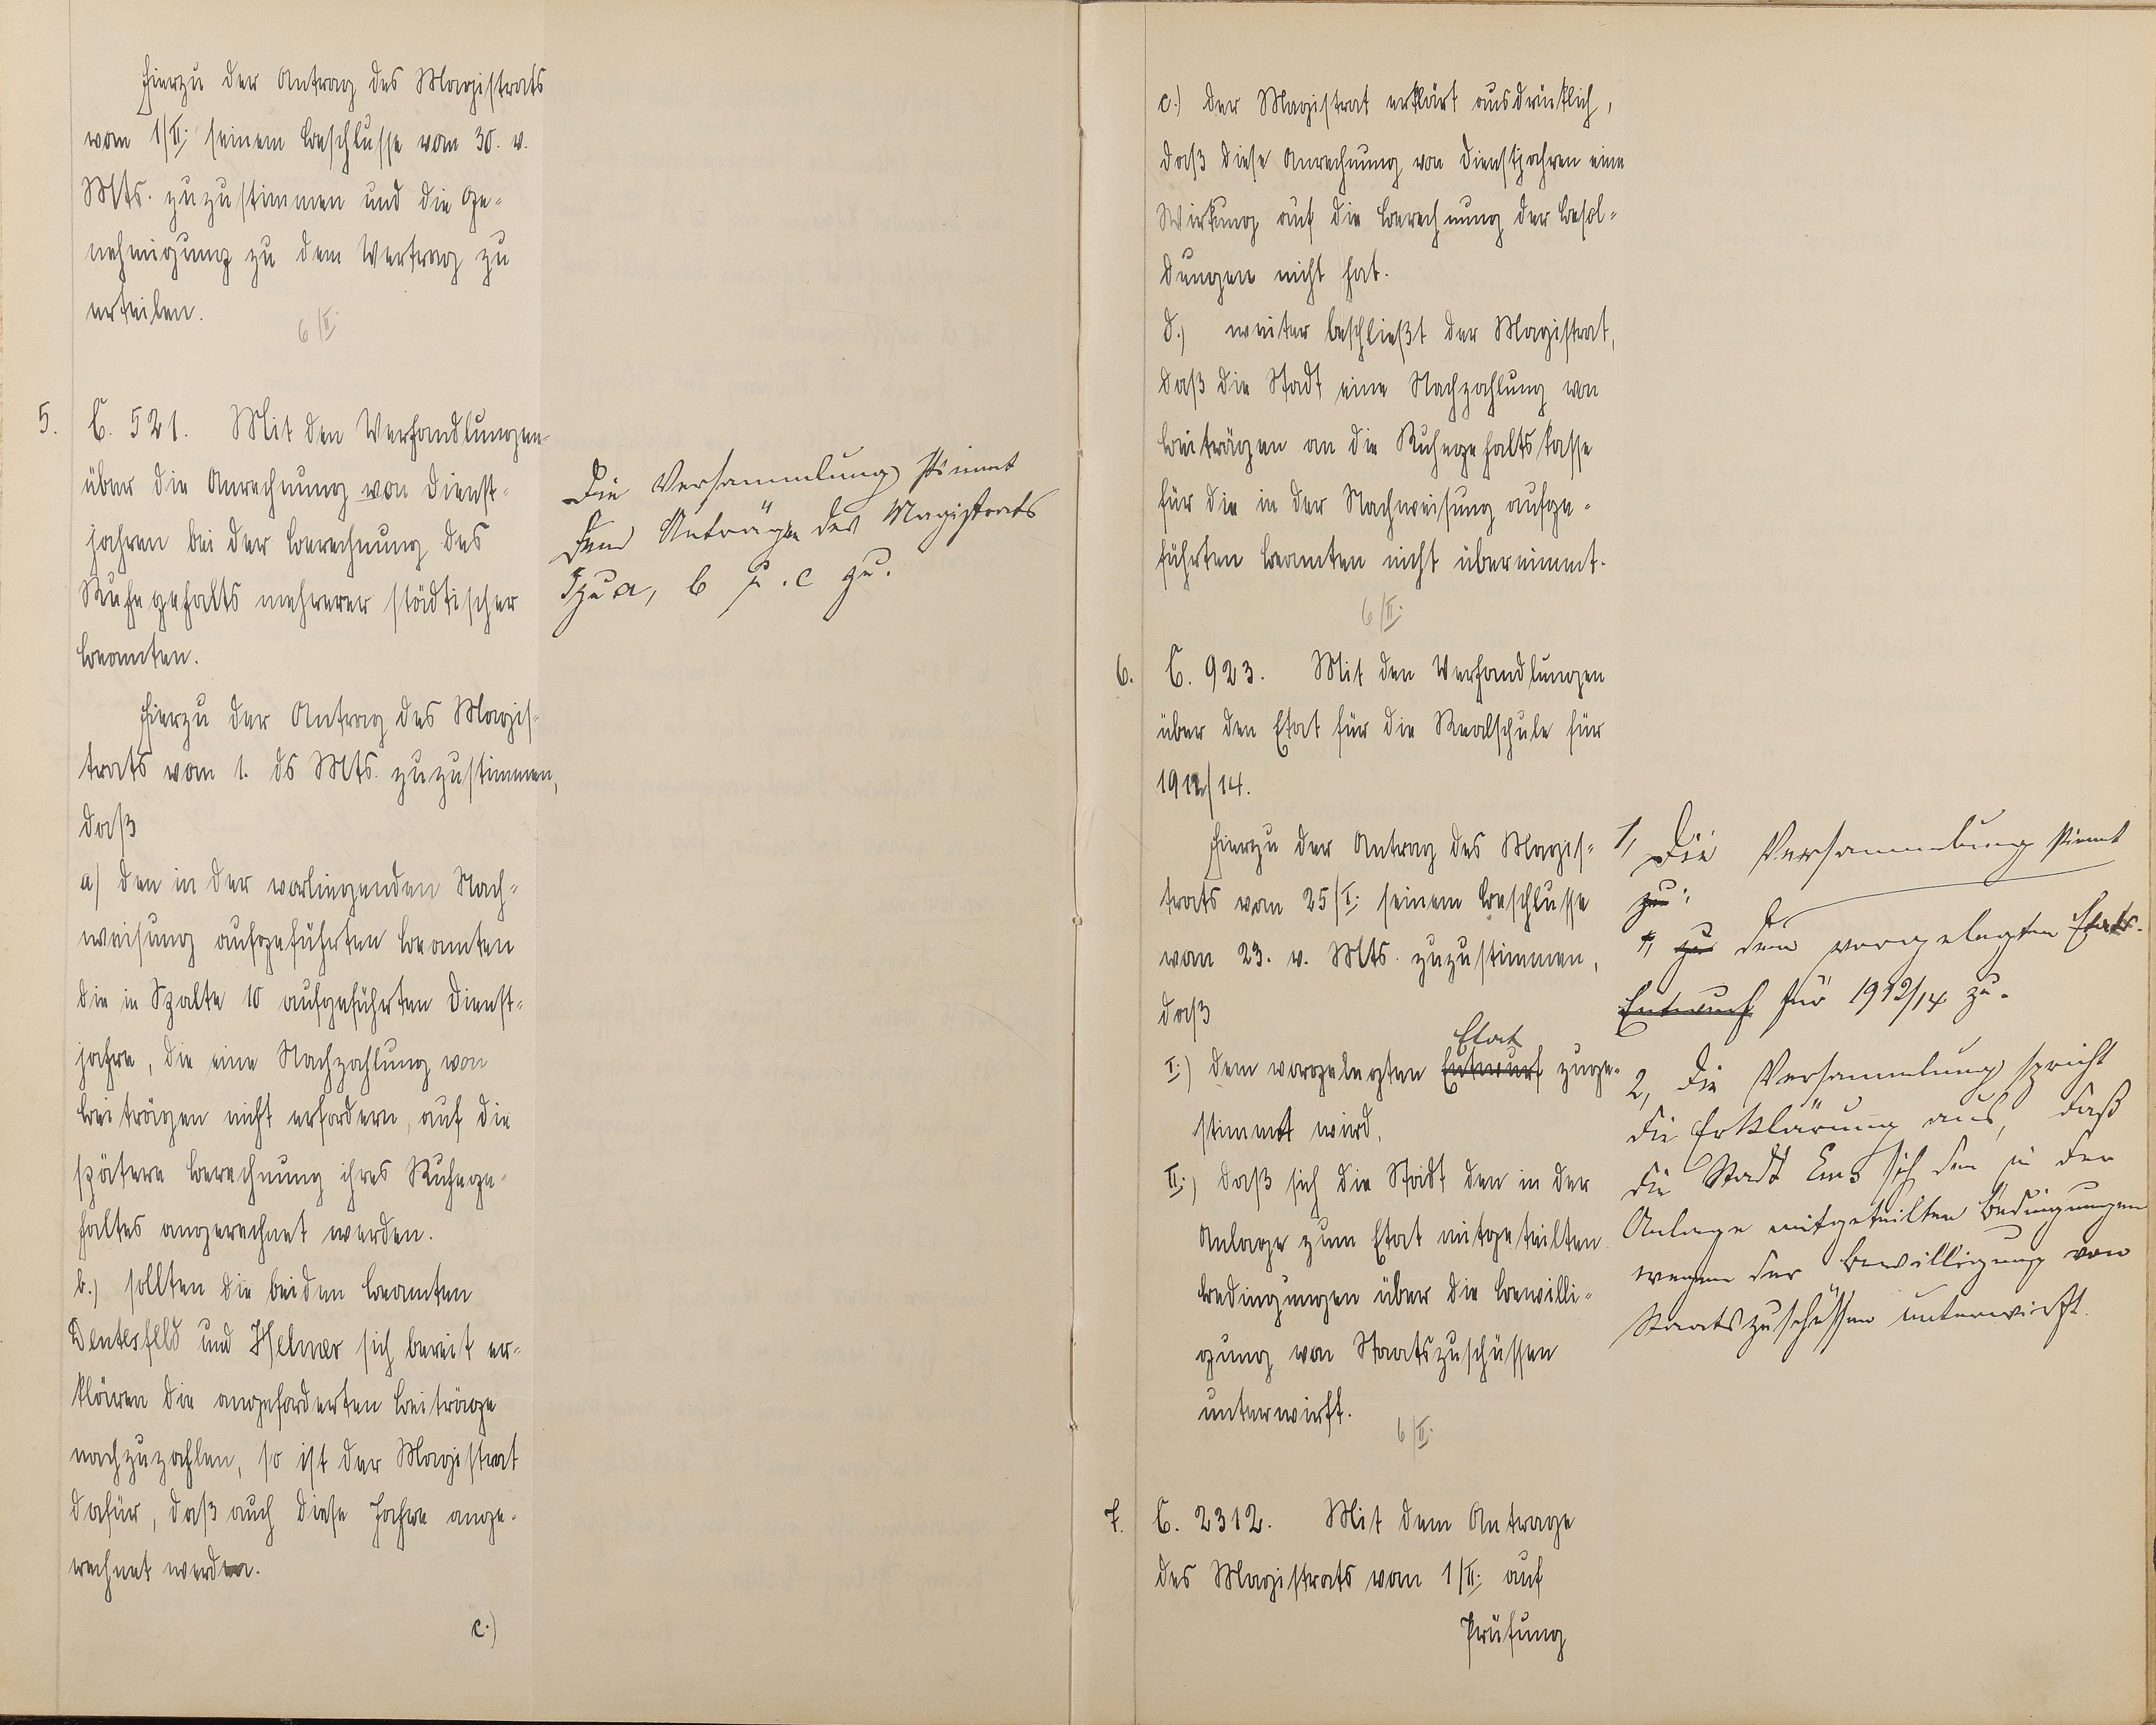 Hierzu der Antrag des Magistrats
vom 1/II. seinem Beschlusse vom 30. v.
Mts. zuzustimmen und die Ge-
nehmigung zu dem Vertrag zu
erteilen.
6/II.
5. C. 521. Mit den Verhandlungen
über die Anrechnung von Dienst-
jahren bei der Berechnung des
Ruhegehalts mehrerer städtischer
Beamten.
Hierzu der Antrag des Magis-
trats vom 1. ds Mts. zuzustimmen,
daß
a) den in der vorliegenden Nach-
weisung aufgeführten Beamten
die in Spalte 10 aufgeführten Dienst-
jahre, die eine Nachzahlung von
Beiträgen nicht erfordern, auf die
spätere Berechnung ihres Ruhege-
haltes angerechnet werden.
b.) sollten die beiden Beamten
Dentesfeld und Helmer sich bereit er-
klären die angeforderten Beiträge
nachzuzahlen, so ist der Magistrat
dafür, daß auch diese Jahre ange-
rechnet werden.
c.)
Die Versammlung stimmt
den Anträgen des Magistrats
zu a, b u. c zu.
c.) der Magistrat erklärt ausdrücklich,
daß diese Anrechnung von Dienstjahren eine
Wirkung auf die Berechnung der Besol-
dungen nicht hat.
d.) weiter beschließt der Magistrat,
daß die Stadt eine Nachzahlung von
Beiträgen an die Ruhegehaltskasse
für die in der Nachweisung aufge-
führten Beamten nicht übernimmt.
6/II.
6. C. 923. Mit den Verhandlungen
über den Etat für die Realschule für
1912/14.
Hierzu der Antrag des Magis-
trats vom 25/I. seinem Beschlusse
vom 23. v. Mts. zuzustimmen,
daß
Etat
I.) dem vorgelegten Entwurf zuge-
stimmt wird,
II.) daß sich die Stadt den in der
Anlage zum Etat mitgeteilten
Bedingungen über die Bewilli-
gung von Staatszuschüssen
unterwirft.
6/II.
7. C. 2312. Mit dem Antrage
des Magistrats vom 1/II. auf
Prüfung
1, Die Versammlung stimmt
zu:
1, zu dem vorgelegten Etats-
Entwurf für 1912/14 zu.
2, Die Versammlung spricht
die Erklärung aus, daß
die Stadt Ems sich den in der
Anlage mitgeteilten Bedingungen
wegen der Bewilligung von
Staatszuschüssen unterwirft.